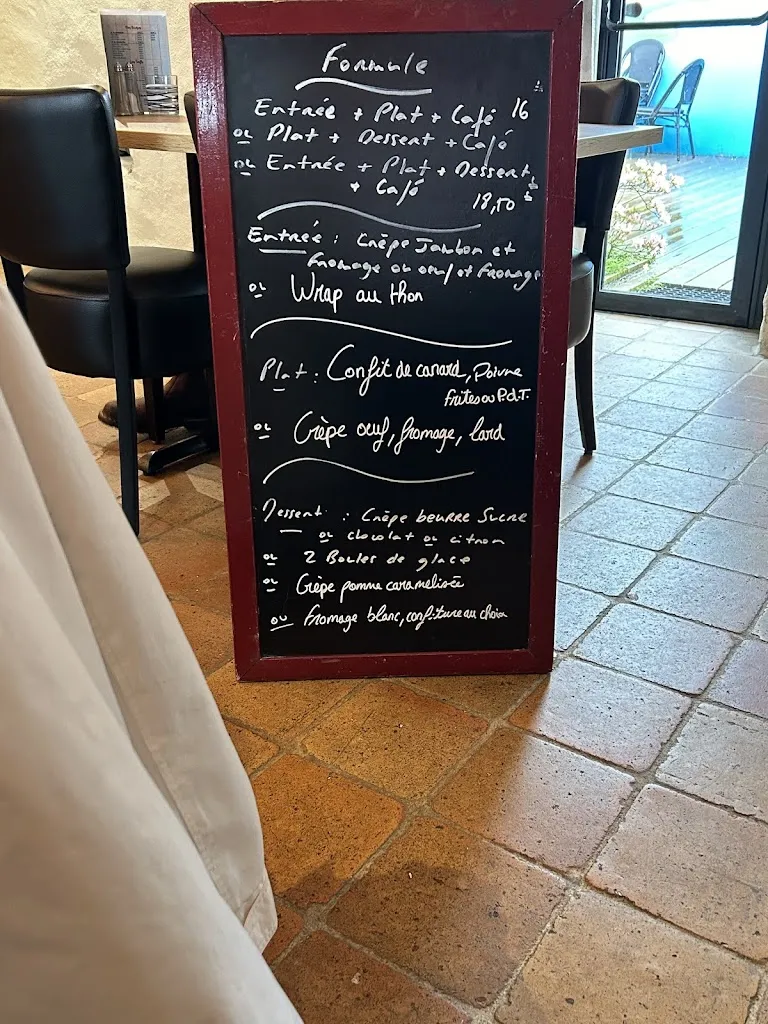 Formule
Entrée + Plat + Café 16 €
ou Plat + Dessert + Café
ou Entrée + Plat + Dessert
+ Café 18,50 €
Entrée : Crêpe Jambon et
fromage ou oeuf et fromage
ou Wrap au thon
Plat : Confit de canard, Poivre
frites ou P.d.T.
ou Crêpe oeuf, fromage, lard
Dessert : Crêpe beurre Sucre
ou chocolat ou citron
ou 2 Boules de glace
ou Crêpe pomme caramélisée
ou fromage blanc, confiture au choix